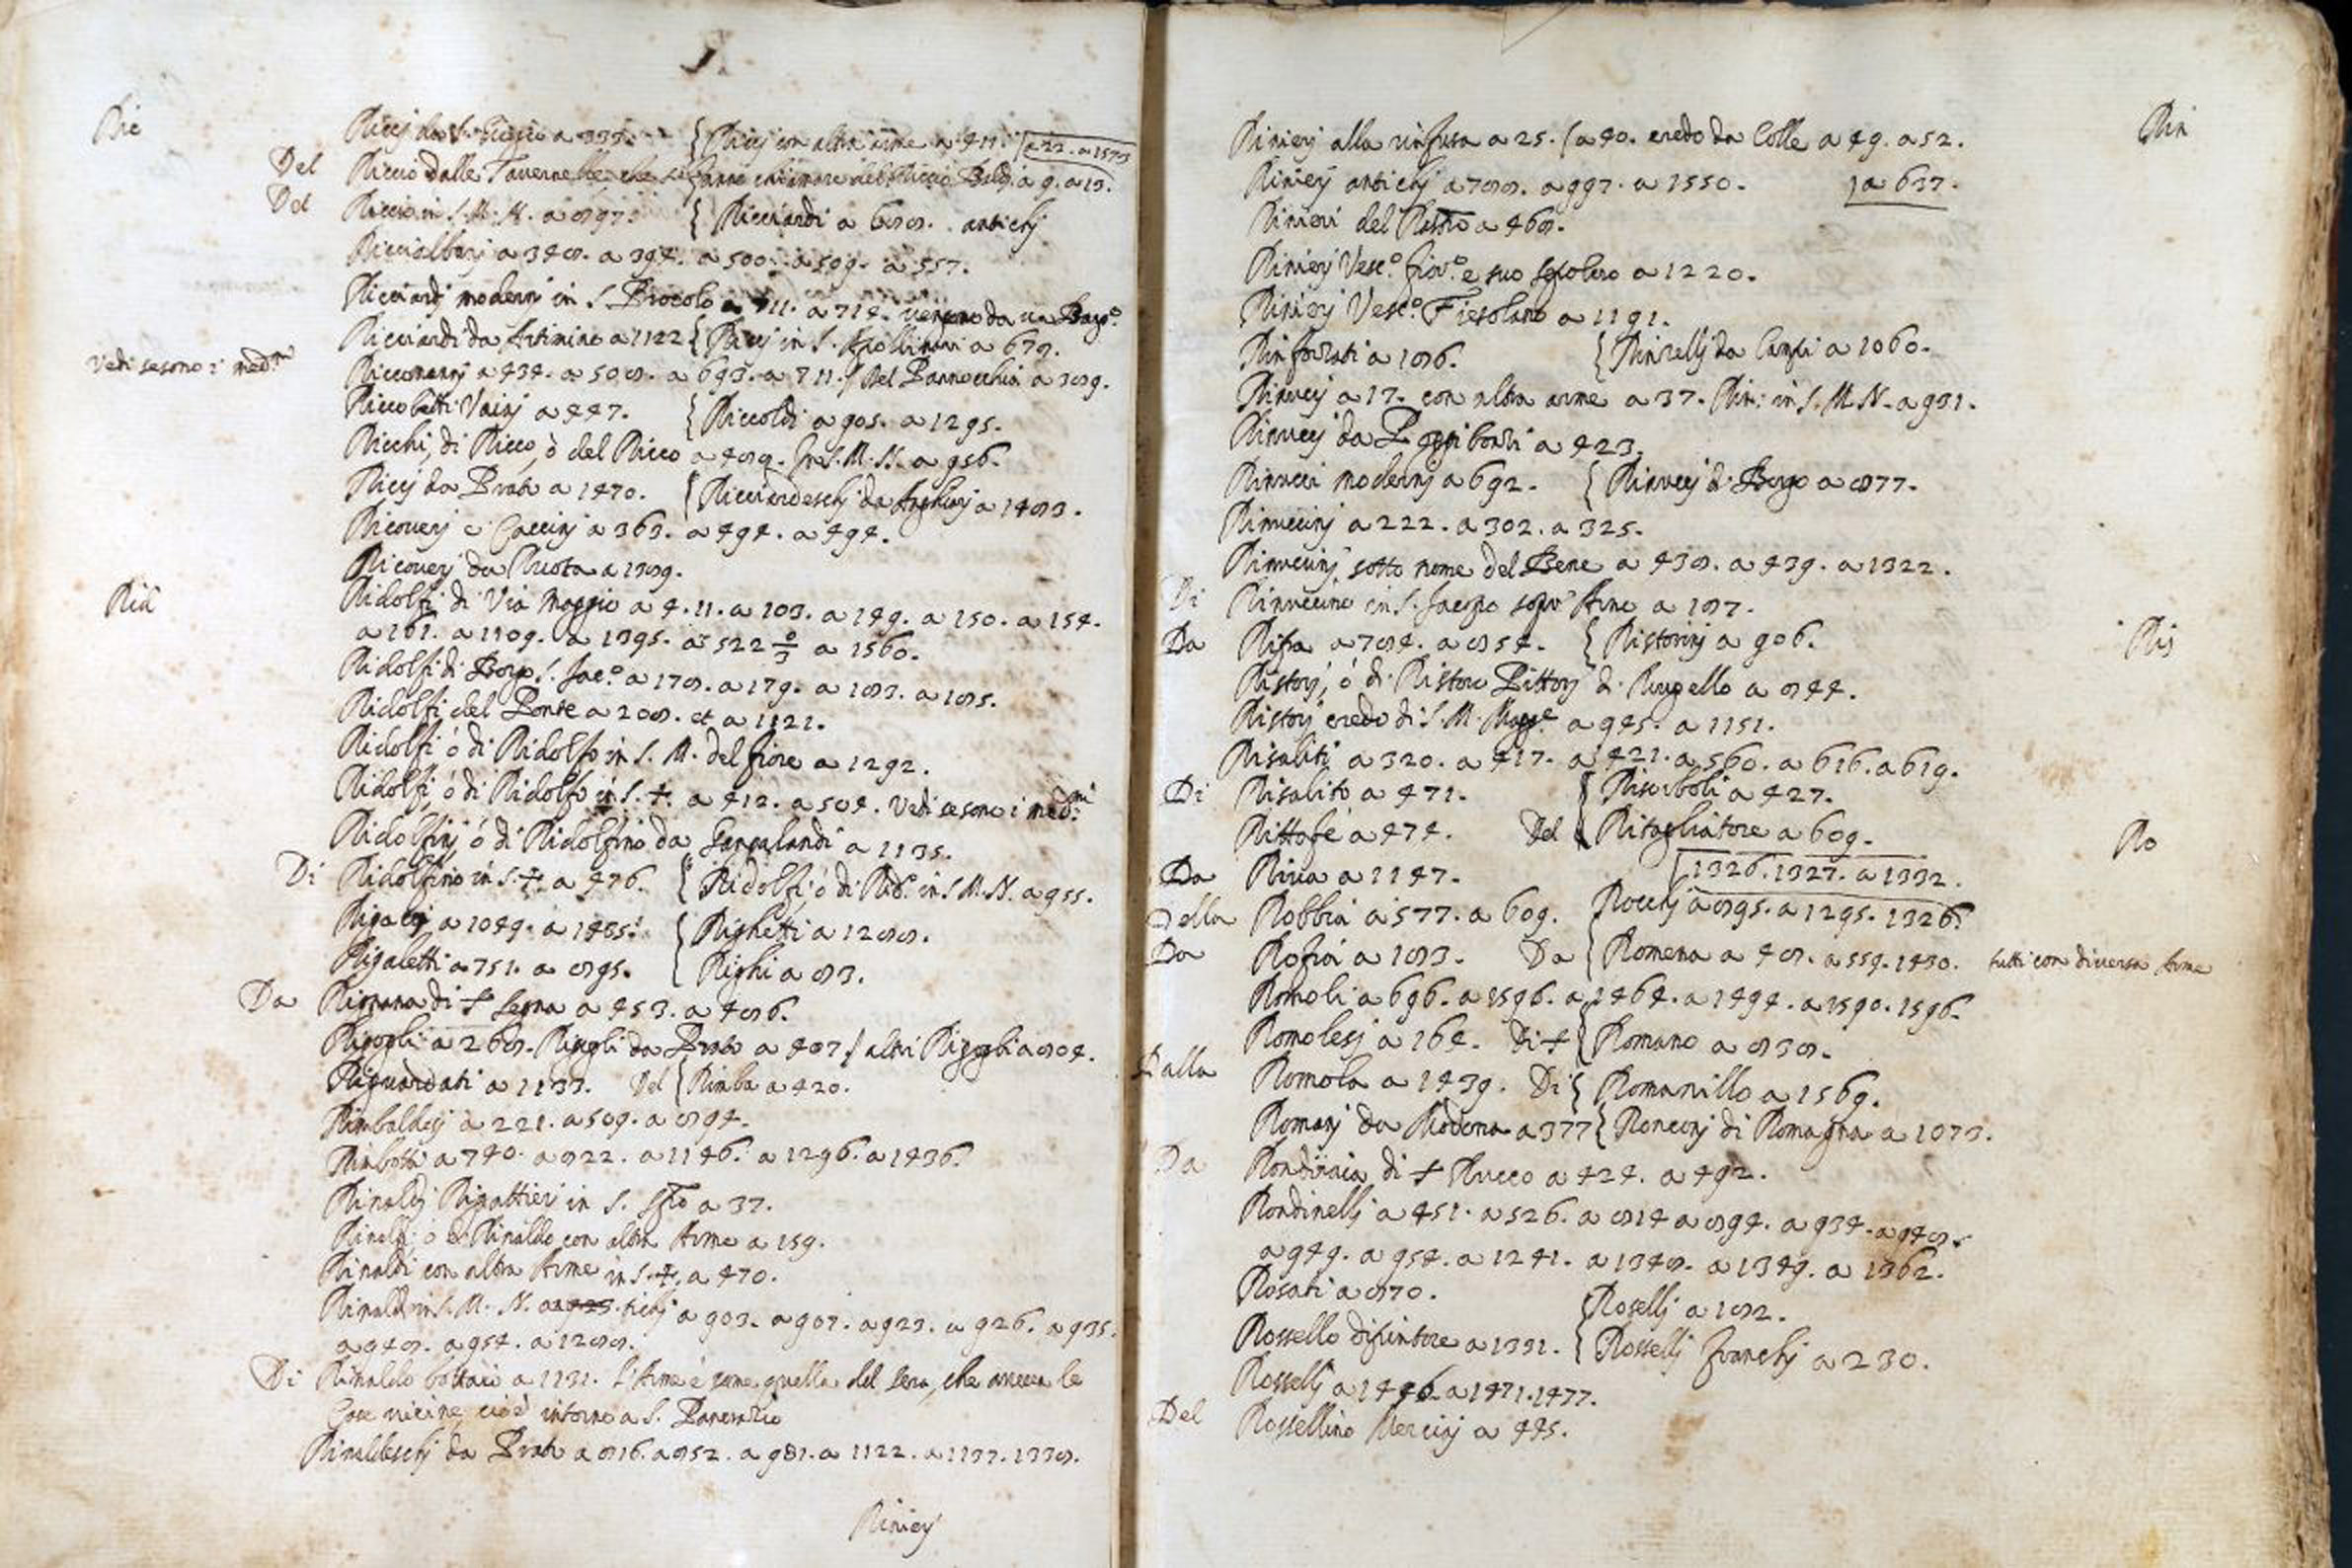 Ric
Riccj da S. a 335. { Riccj con altra arme a 411. a 22. a 1573
Del Riccio dalle Tavernelle che si Baldi. a 9. a 13.
Del Riccio in S. M. N. a 897. { Ricciardi a 688. antichj
Riccialbanj a 348. a 394. a 500. a 509. a 557.
Ricciardj modernj in S. Brocolo a 711. a 714. vengono da via
Ricciardi da Artimino a 1122 { Riccj in S. Apollinari a 679.
Vedi se sono i med.mi Riccomannj a 434. a 508. a 693. a 711. / Del Pannocchia a 389.
Riccobaldi Vainj a 447. { Riccoldi a 905. a 1295.
Ricchi, di Ricco, ò del Ricco a 489. In S. M. N. a 956.
Riccj da Prato a 1470. { Ricciardeschj da Anghiarj a 1483.
Ricoverj a 363. a 494. a 494.
Ricoverj da Ruota a 1389.
Rid Ridolfi di Via Maggio a 4. 11. a 103. a 149. a 150. a 154.
a 161. a 1109. a 1395. a 522 a 1560.
Ridolfi di Borgo S. Jac.o a 178. a 179. a 183. a 185.
Ridolfi del Ponte a 208. et a 1121.
Ridolfi ò di Ridolfo in S. M. del fiore a 1292.
Ridolfi, ò di Ridolfo in S. +. a 412. a 504. Vedi se sono i med.mi
Ridolfinj ò di Ridolfino da Gangalandi a 1135.
Di Ridolfino in S. +. a 476. { Ridolfi, ò di Rid.o in S. M. N. a 955.
a 1049. a 1485. { Righetti a 1288.
Rigaletti a 751. a 895. { Righi a 83.
Da Rignana di + Segna a 453. a 486.
Rigogli a 268. Rigogli da Prato a 407. / altri Rigogli a 804.
Riguardati a 1133. Del { Rimba a 420.
Rimbaldesj a 221. a 509. a 894.
Rimbotti a 740. a 822. a 1146. a 1296. a 1436.
Rinaldj Rigattieri in S. Sfto a 37.
Rinaldi ò di Rinaldo con altra Arme a 159.
Rinaldi con altra Arme in S. +. a 470.
Rinaldi in S. M. N. a 903. a 907. a 923. a 926. a 935.
a 948. a 954. a 1288.
Di Rinaldo bottaio a 1131. L'Arme è come quella del Sera, che aveva le
Case vicine, cioè intorno a S. Pancrazio
Rinaldeschj da Prato a 816. a 852. a 981. a 1122. a 1137. 1338.
Rinierj
Rin
Rinierj alla rinfusa a 25. / a 40. credo da Colle a 49. a 52.
Rinierj antichj a 788. a 997. a 1550. a 637.
Rinieri del a 468.
Rinierj Vesc.o fior.o e suo sepolcro a 1220.
Rinierj Vesc.o Fiesolano a 1191.
Rinforzati a 186. { Rinrellj da Campi a 1060.
Rinuccj a 17. con altra arme a 37. Rin: in S. M. N. a 931.
Rinuccj da Poggibonsi a 423.
Rinucci modernj a 692. { Rinuccj di Borgo a 877.
Rinuccinj a 222. a 302. a 325.
Rinuccinj sotto nome del Bene a 438. a 439. a 1322.
Di Rinuccino in S. Jacopo sopr'Arno a 187.
Da Ripa a 784. a 854. { Ristorinj a 906. Ris
Ristorj, ò di Ristoro Pittorj di a 844.
Ristorj credo di S. M. Magg.e a 945. a 1151.
Risaliti a 320. a 417. a 421. a 560. a 616. a 619.
Di Risalito a 471. { Risciboli a 427.
Rittafè a 474. Del { Ritagliatore a 609. Ro
Da Riva a 1147. 1326. 1327. a 1332.
Della Robbia a 577. a 609. { Rocchj a 895. a 1295. 1326.
Da Rofia a 183. Da { Romena a 48. a 559. 1430. tutti con diversa Arme
Romoli a 696. a 1596. a 1464. a 1494. a 1590. 1596.
Romolesj a 164. Di + { Romano a 838.
Dalla Romola a 1439. Di { Romanillo a 1569.
Romanj da Modona a 377 { Ronconj di Romagna a 1073.
Da Rondinaia di + Rucco a 424. a 492.
Rondinellj a 451. a 526. a 814 a 894. a 934. a 948.
a 949. a 954. a 1241. a 1348. a 1349. a 1362.
Rosati a 870. { Rosellj a 182.
Rossello dipintore a 1331. { Rossellj franchj a 230.
Rossellj a 1446. a 1471. 1477.
Del Rossellino Merciaj a 445.